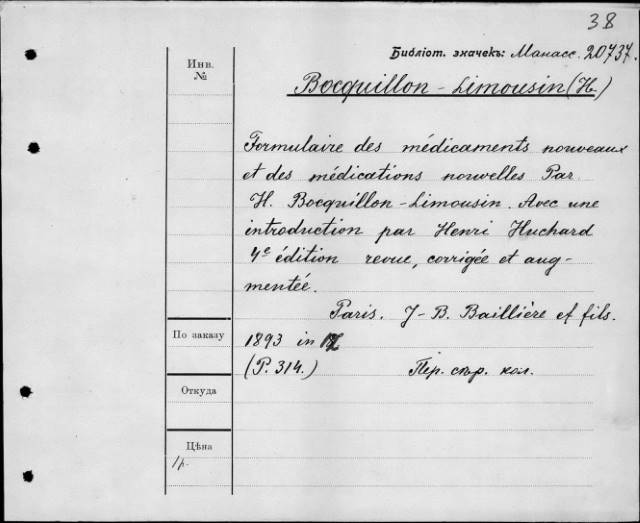 38
Библіот. значекъ: Манасс. 20737.
Инв.
№
Bocquillon-Limousin (H.)
Formulaire des médicaments nouveaux
et des médications nouvelles Par
H. Bocquillon-Limousin. Avec une
introduction par Henri Huchard
4e édition revue, corrigée et aug-
mentée.
Paris. J-B. Baillière et fils.
По заказу
1893 in
(P. 314.) Пер. сѣр. кол.
Откуда
Цѣна
1р.